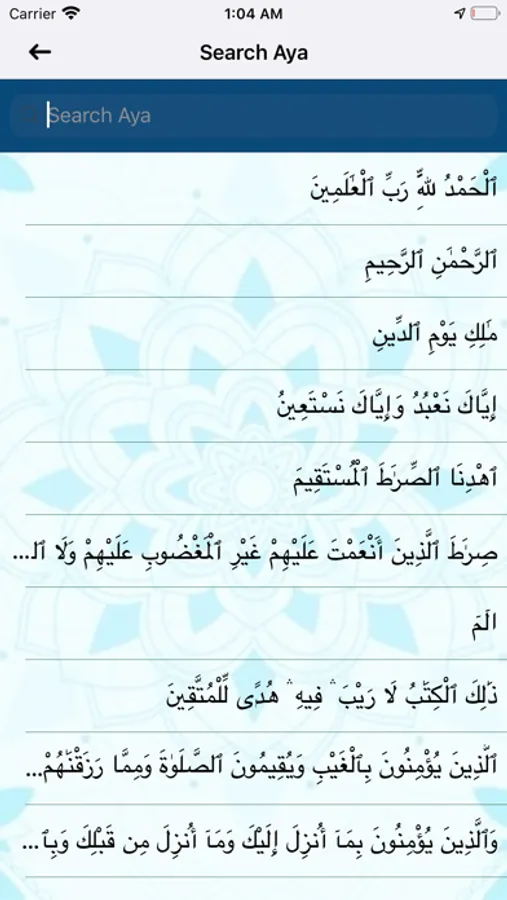 Carrier 1:04 AM
Search Aya
Search Aya
ٱلْحَمْدُ لِلَّهِ رَبِّ ٱلْعَٰلَمِينَ
ٱلرَّحْمَٰنِ ٱلرَّحِيمِ
مَٰلِكِ يَوْمِ ٱلدِّينِ
إِيَّاكَ نَعْبُدُ وَإِيَّاكَ نَسْتَعِينُ
ٱهْدِنَا ٱلصِّرَٰطَ ٱلْمُسْتَقِيمَ
صِرَٰطَ ٱلَّذِينَ أَنْعَمْتَ عَلَيْهِمْ غَيْرِ ٱلْمَغْضُوبِ عَلَيْهِمْ وَلَا ٱلـ...
الٓمٓ
ذَٰلِكَ ٱلْكِتَٰبُ لَا رَيْبَ ۛ فِيهِ ۛ هُدًى لِّلْمُتَّقِينَ
ٱلَّذِينَ يُؤْمِنُونَ بِٱلْغَيْبِ وَيُقِيمُونَ ٱلصَّلَوٰةَ وَمِمَّا رَزَقْنَٰهُمْ...
وَٱلَّذِينَ يُؤْمِنُونَ بِمَآ أُنزِلَ إِلَيْكَ وَمَآ أُنزِلَ مِن قَبْلِكَ وَبِٱ...